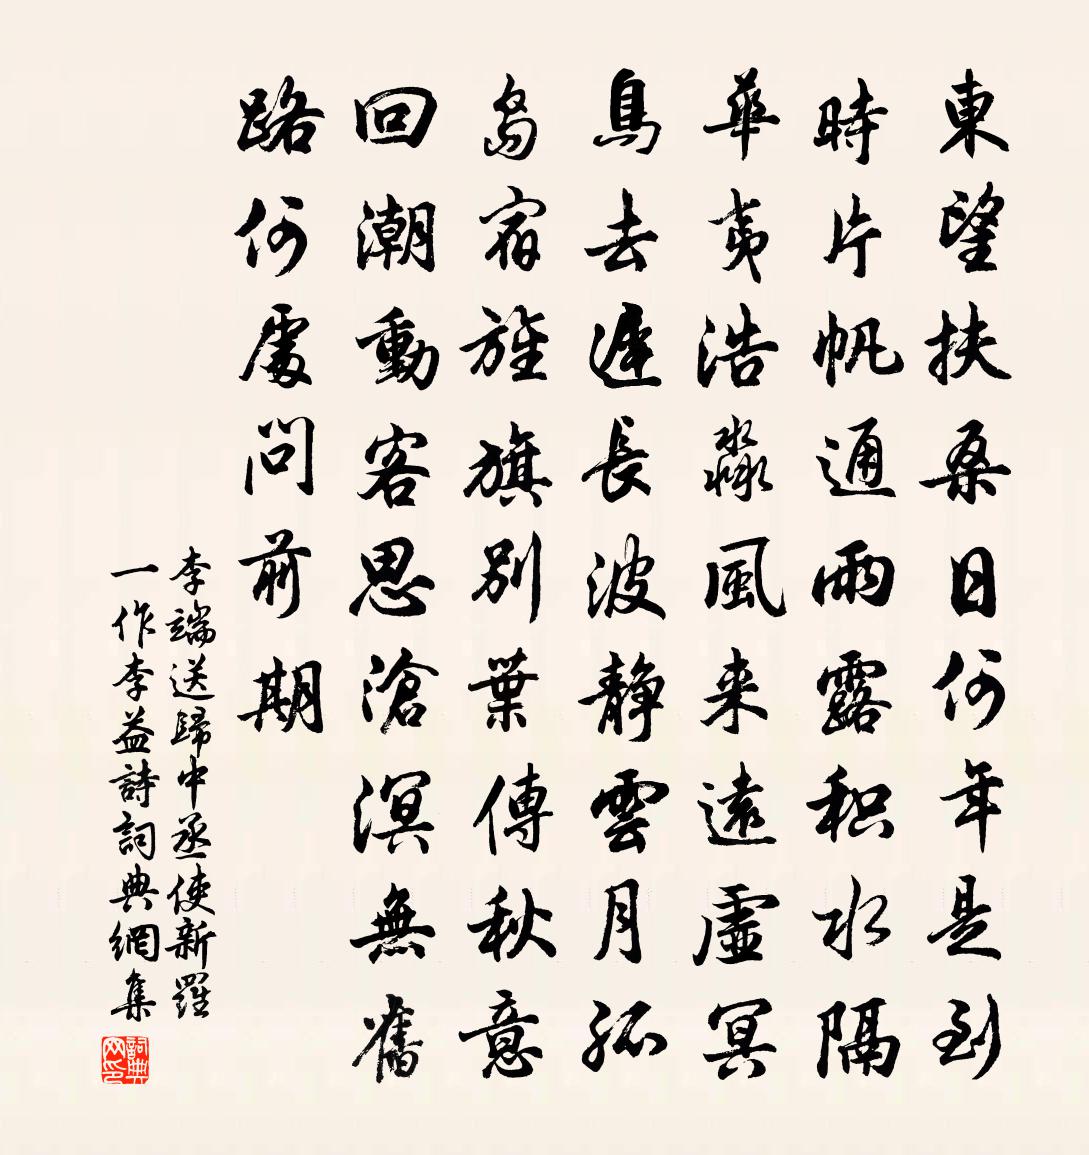 東望扶桑日何年是到
時片帆通雨露积水隔
華夷浩淼風来遠虛冥
鳥去遲長波靜雲月孤
島宿旌旗別葉傳秋意
回潮動客思滄溟無舊
路何處問前期
李端送歸中丞使新羅
一作李益詩詞典網集
詞典网印